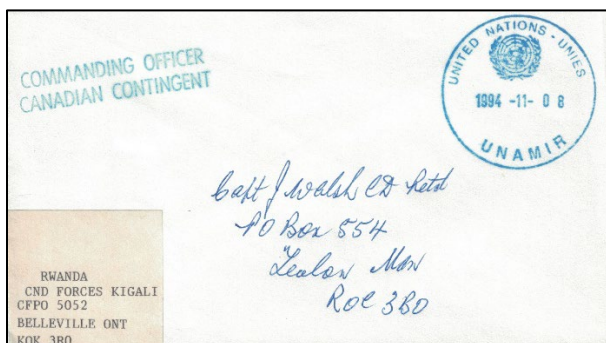 COMMANDING OFFICER
CANADIAN CONTINGENT
UNITED NATIONS - UNIES
1994 -11- 0 8
UNAMIR
Capt J Walsh CD Retd
PO Box 554
Teulon Man
ROC 3BO
RWANDA
CND FORCES KIGALI
CFPO 5052
BELLEVILLE ONT
KOK 3RO